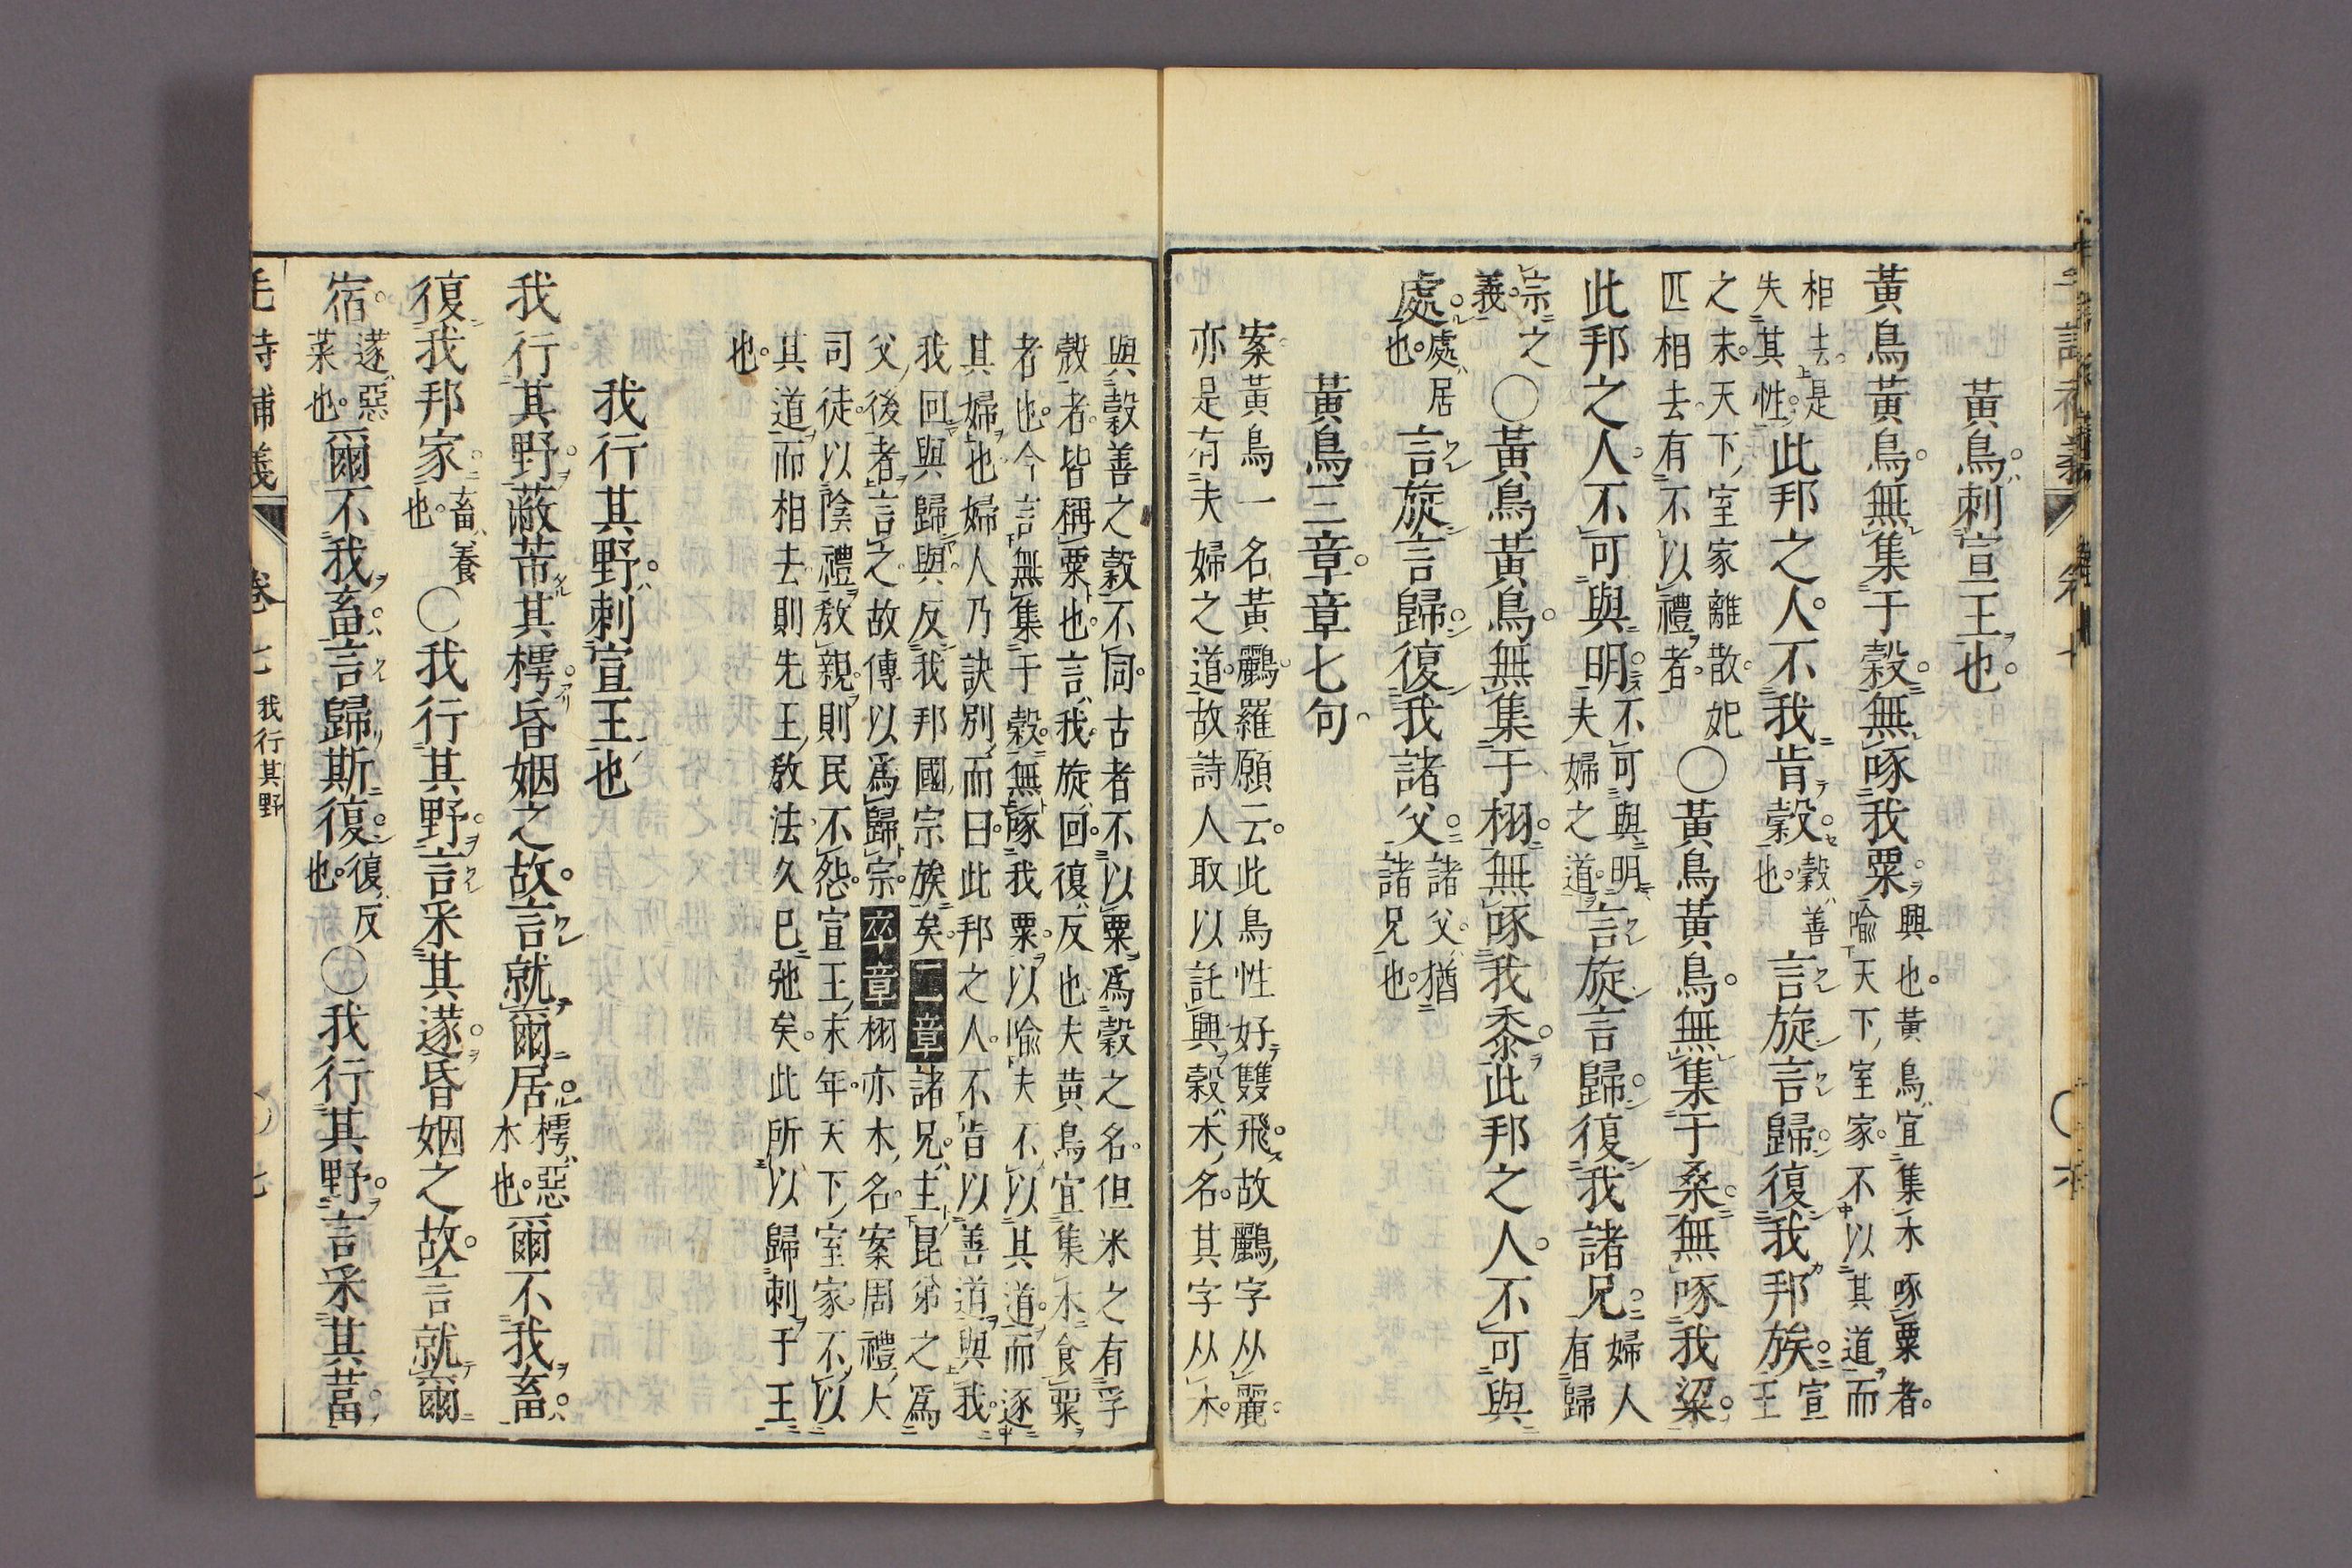 黃鳥刺宣王也
黃鳥黃鳥無集于穀無啄我粟興也黃鳥宜集木啄粟者
喻天下室家不以其道而
相去是
失其性此邦之人不我肯穀穀善
也言旋言歸復我邦族宣
王
之末天下室家離散妃
匹相去有不以禮者〇黃鳥黃鳥無集于桑無啄我粱
此邦之人不可與明不可與明
夫婦之道言旋言歸復我諸兄婦人
有歸
宗之
義〇黃鳥黃鳥無集于栩無啄我黍此邦之人不可與
處處居
也言旋言歸復我諸父諸父猶
諸兄也
黃鳥三章章七句
案黃鳥一名黃鸝羅願云此鳥性好雙飛故鸝字从麗
亦是有夫婦之道故詩人取以託興穀木名其字从木
與穀善之穀不同古者不以粟爲穀之名但米之有孚
殼者皆稱粟也言我旋回復反也夫黃鳥宜集木食粟
者也今言無集于穀無啄我粟以喻夫不以其道而逐
其婦也婦人乃訣別而曰此邦之人不肯以善道與我
我回與歸與反我邦國宗族矣二章諸兄主昆弟之爲
父後者言之故傳以爲歸宗卒章栩亦木名案周禮大
司徒以陰禮敎親則民不怨宣王末年天下室家不以
其道而相去則先王敎法久巳弛矣此所以歸刺于王
也
我行其野刺宣王也
我行其野蔽芾其樗昏姻之故言就爾居樗惡
木也爾不我畜
復我邦家畜養
也〇我行其野言采其蓫昏姻之故言就爾
宿蓫惡
菜也爾不我畜言歸斯復復反
也〇我行其野言采其葍
毛詩補義 卷七 我行其野 七